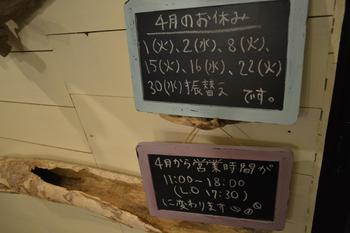 4月のお休み
1(火)、2(水)、8(火)、
15(火)、16(水)、22(火)
30(水)振替え です。
4月から営業時間が
11:00~18:00
(L.O 17:30)
に変わります